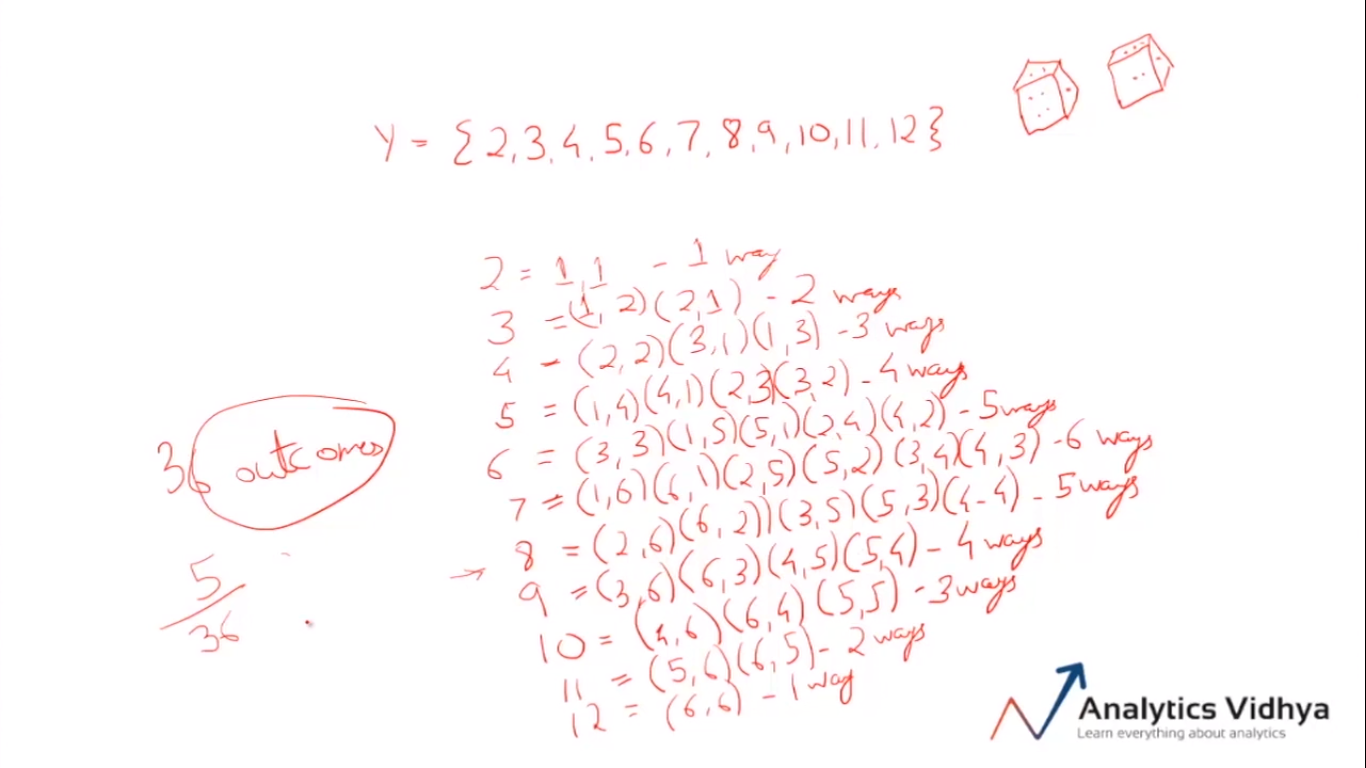 Y = {2,3,4,5,6,7,8,9,10,11,12}
2 = 1,1 - 1 way
3 = (1,2)(2,1) - 2 ways
4 - (2,2)(3,1)(1,3) - 3 ways
5 = (1,4)(4,1)(2,3)(3,2) - 4 ways
6 = (3,3)(1,5)(5,1)(2,4)(4,2) - 5 ways
7 = (1,6)(6,1)(2,5)(5,2)(3,4)(4,3) - 6 ways
8 = (2,6)(6,2))(3,5)(5,3)(4-4) - 5 ways
→ 9 = (3,6)(6,3)(4,5)(5,4) - 4 ways
10 = (4,6)(6,4)(5,5) - 3 ways
11 = (5,6)(6,5) - 2 ways
12 = (6,6) - 1 way
36 outcomes
5
36
Analytics Vidhya
Learn everything about analytics